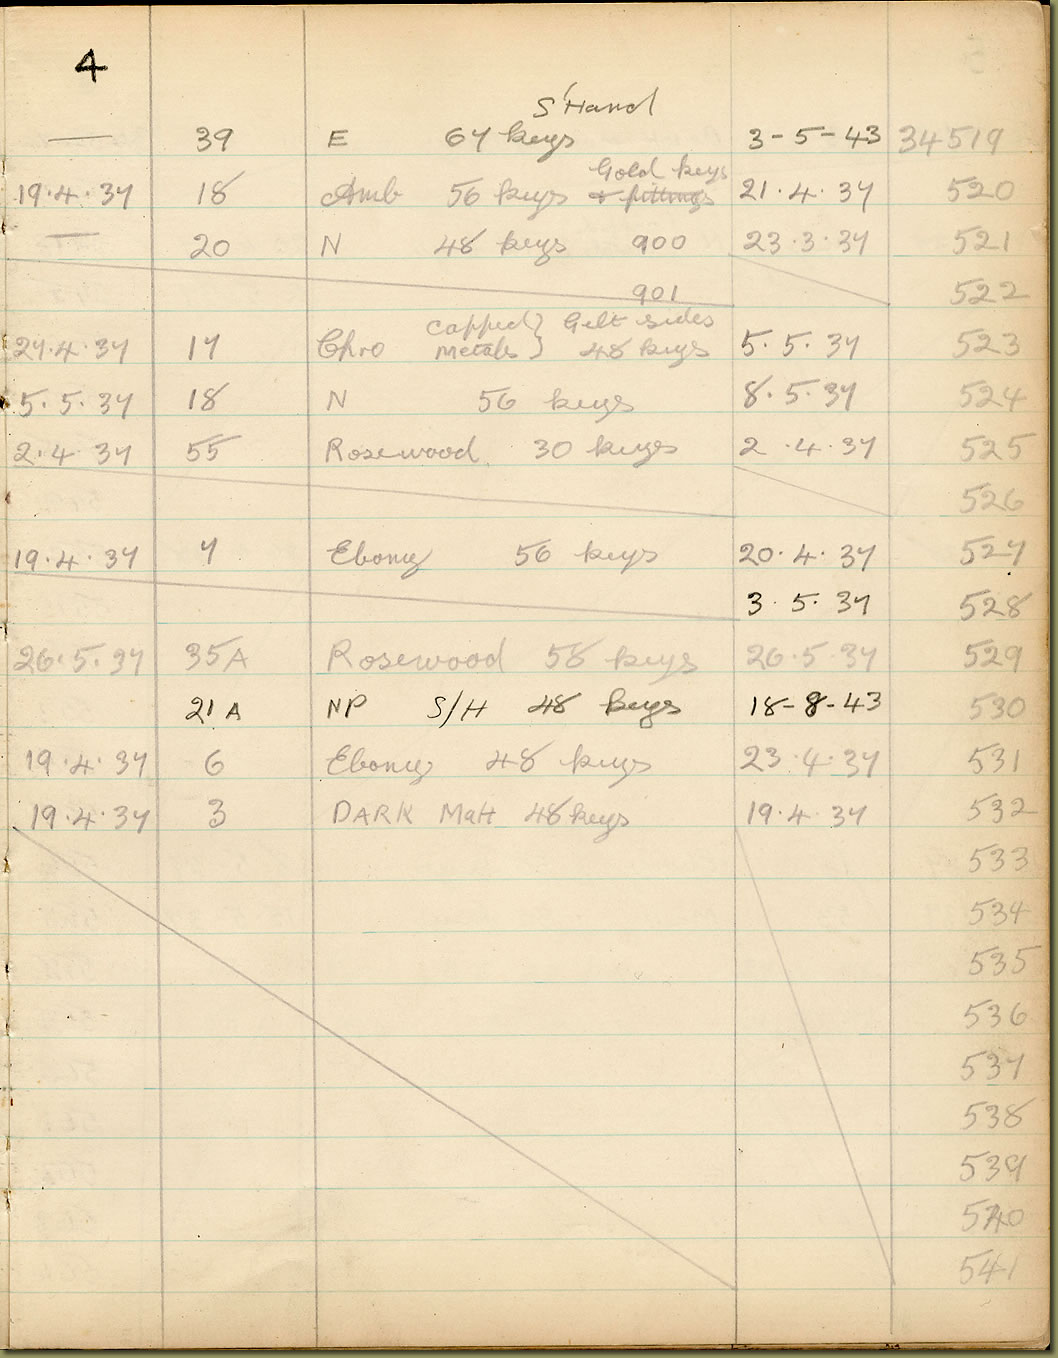 4
S'Hand
— 39 E 67 keys 3-5-43 34519
Gold keys
19.4.37 18 Amb 56 keys & fittings 21.4.37 520
— 20 N 48 keys 900 23.3.37 521
901 522
Capped } Gilt sides
27.4.37 17 Chro Metals } 48 keys 5.5.37 523
5.5.37 18 N 56 keys 8.5.37 524
2.4.37 55 Rosewood 30 keys 2.4.37 525
526
19.4.37 7 Ebony 56 keys 20.4.37 527
3.5.37 528
26.5.37 35A Rosewood 58 keys 26.5.37 529
21A NP S/H 48 keys 18-8-43 530
19.4.37 6 Ebony 48 keys 23.4.37 531
19.4.37 3 DARK MaH 48 keys 19.4.37 532
533
534
535
536
537
538
539
540
541